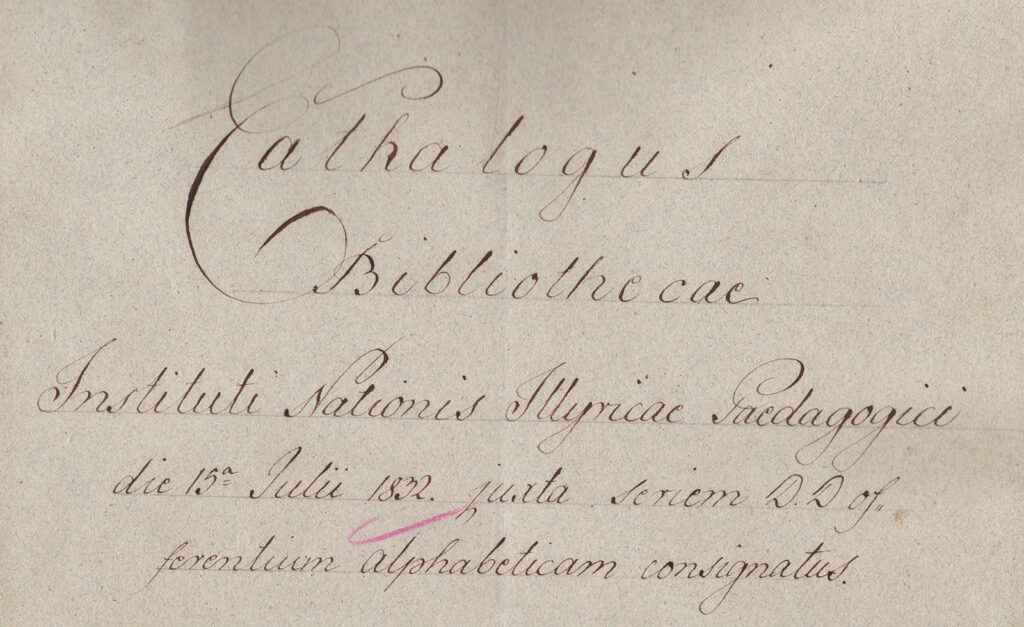 Cathalogus
Bibliothecae
Instituti Nationis Illyricae Paedagogici
die 15ª Julii 1832. juxta seriem D.D of„
ferentium alphabeticam consignatus.